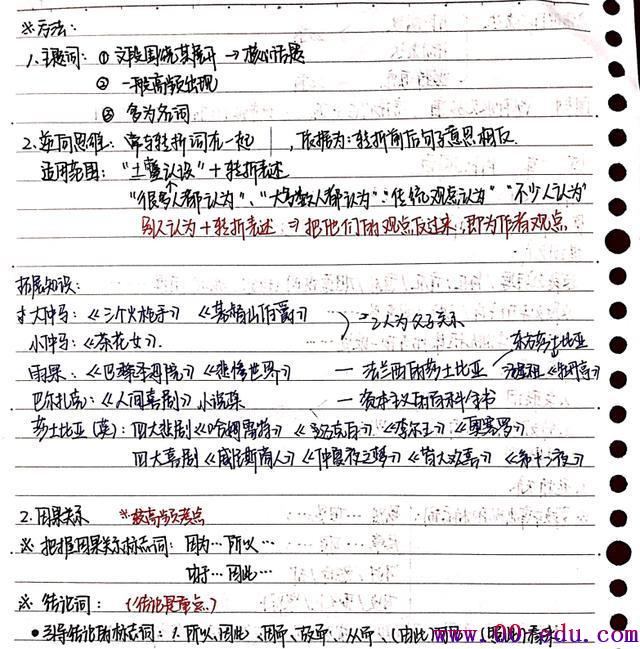 ※方法：
1.主题词：① 文段围绕其展开 → 核心话题
② 一般高频出现
③ 多为名词
2.逆向思维：常与转折词在一起，依据为：转折前后句子意思相反.
适用范围：“土鳖认设”+转折表述
“很多人都认为”、“大多数人都认为”“传统观点认为”“不少人认为”
别人认为+转折表述 ⇒ 把他们的观点反过来，即为作者观点
拓展知识：
大仲马：《三个火枪手》《基督山伯爵》 二人为父子关系
小仲马：《茶花女》. 东方莎士比亚
雨果：《巴黎圣母院》《悲惨世界》 — 法兰西的莎士比亚 汤显祖《牡丹亭》
巴尔扎克：《人间喜剧》小说集 — 资本主义的百科全书
莎士比亚(英)：四大悲剧《哈姆雷特》《麦克白》《李尔王》《奥赛罗》
四大喜剧《威尼斯商人》《仲夏夜之梦》《皆大欢喜》《第十二夜》
2.因果关系 ※较高频考点
※ 把握因果关系标志词：因为…所以…
由于…因此…
※ 结论词：(结论是重点)
• 引导结论的标志词：1.所以、因此、因而、故而、从而、(由此)可见、
www.00-edu.com